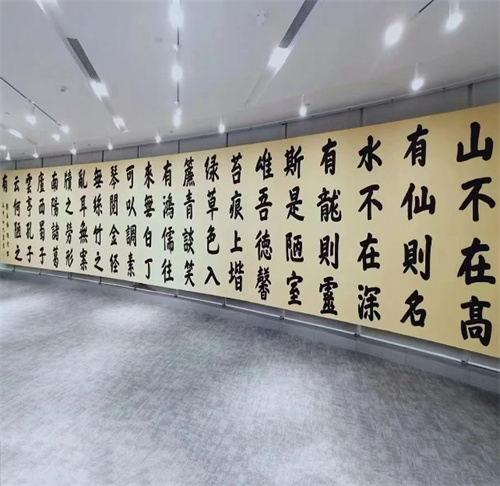 山不在髙
有仙則名
水不在深
有龍則靈
斯是陋室
唯吾德馨
苔痕上堦
緑草色入
簾青談笑
有鴻儒往
來無白丁
可以調素
琴閲金经
無絲竹之
亂耳無案
牘之勞形
南陽諸葛
廬西蜀子
雲亭孔子
云何陋之
有